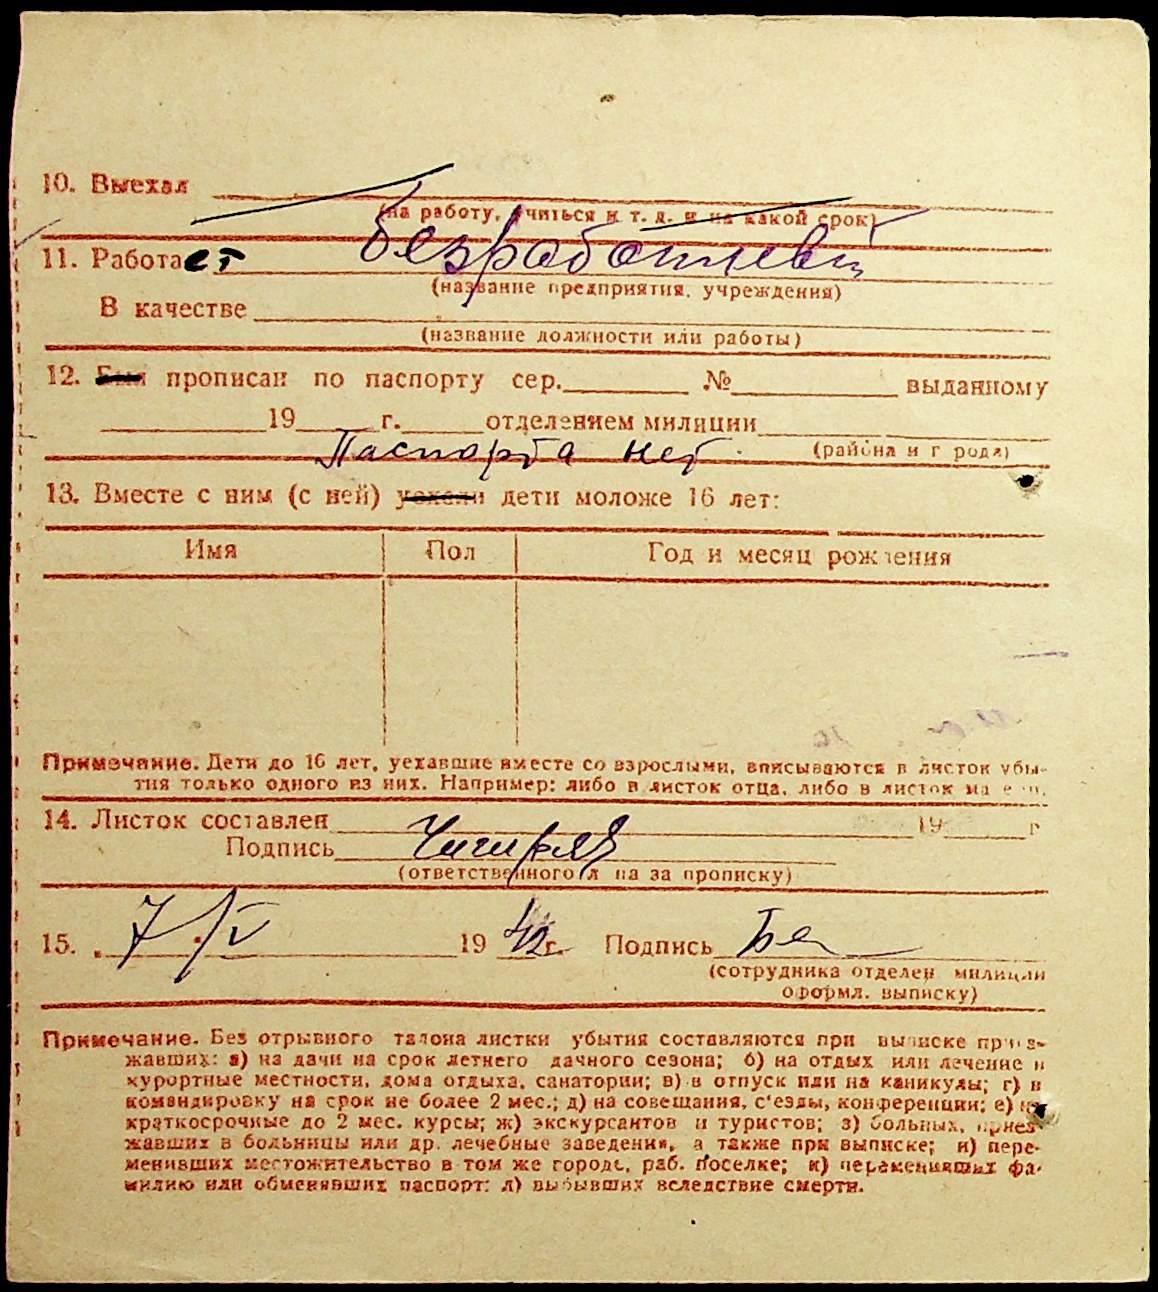 10. Выехал
(на работу, учиться и т. д. и на какой срок)
11. Работает
(название предприятия, учреждения)
В качестве
(название должности или работы)
12. Был прописан по паспорту сер. № выданному
19 г. отделением милиции
Паспорта нет (района и города)
13. Вместе с ним (с ней) уехали дети моложе 16 лет:
Имя Пол Год и месяц рождения
Примечание. Дети до 16 лет, уехавшие вместе со взрослыми, вписываются в листок убы-
тия только одного из них. Например: либо в листок отца, либо в листок матери.
14. Листок составлен 19 г
Подпись
(ответственного л на за прописку)
15. 7/V 1942 г. Подпись
(сотрудника отделен милиции
оформл. выписку)
Примечание. Без отрывного талона листки убытия составляются при выписке приез-
жавших: а) на дачи на срок летнего дачного сезона; б) на отдых или лечение в
курортные местности, дома отдыха, санатории; в) в отпуск или на каникулы; г) в
командировку на срок не более 2 мес.; д) на совещания, с'езды, конференции; е) на
краткосрочные до 2 мес. курсы; ж) экскурсантов и туристов; з) больных, приез-
жавших в больницы или др. лечебные заведения, а также при выписке; и) пере-
менивших местожительство в том же городе, раб. поселке; к) переменивших фа-
милию или обменявших паспорт; л) выбывших вследствие смерти.